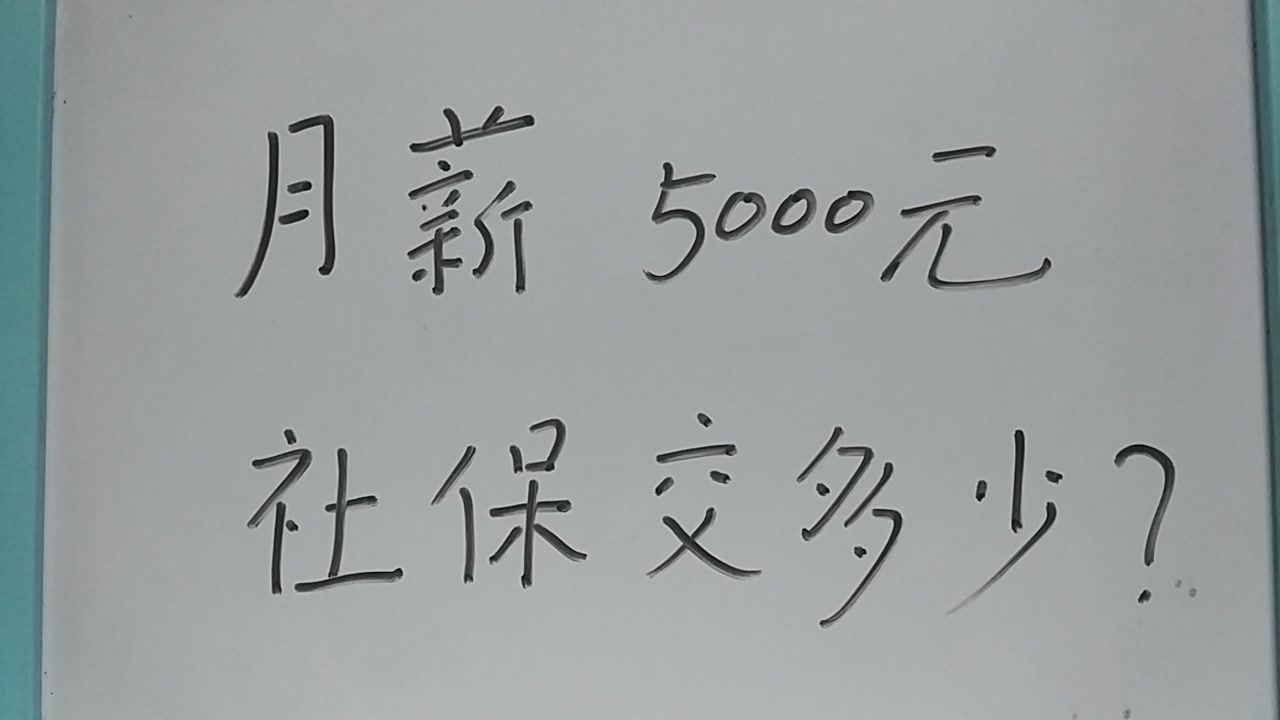 月薪 5000元
社保交多少?